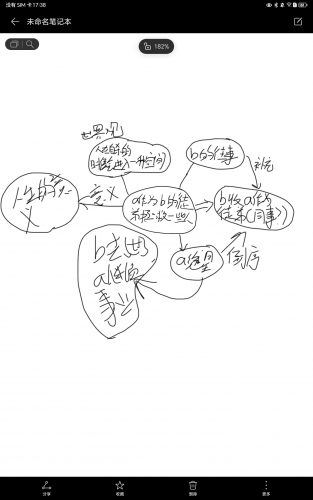 没有 SIM 卡 17:38
未命名笔记本
182%
世界观
人在睡的
时候进入一种空间
b的往事
补充
人生的意
义
意义
a作为b的徒
弟
b收a作为
徒弟(同事)
a绝望
倒序
b去世
a继承
事业
分享
收藏
删除
更多